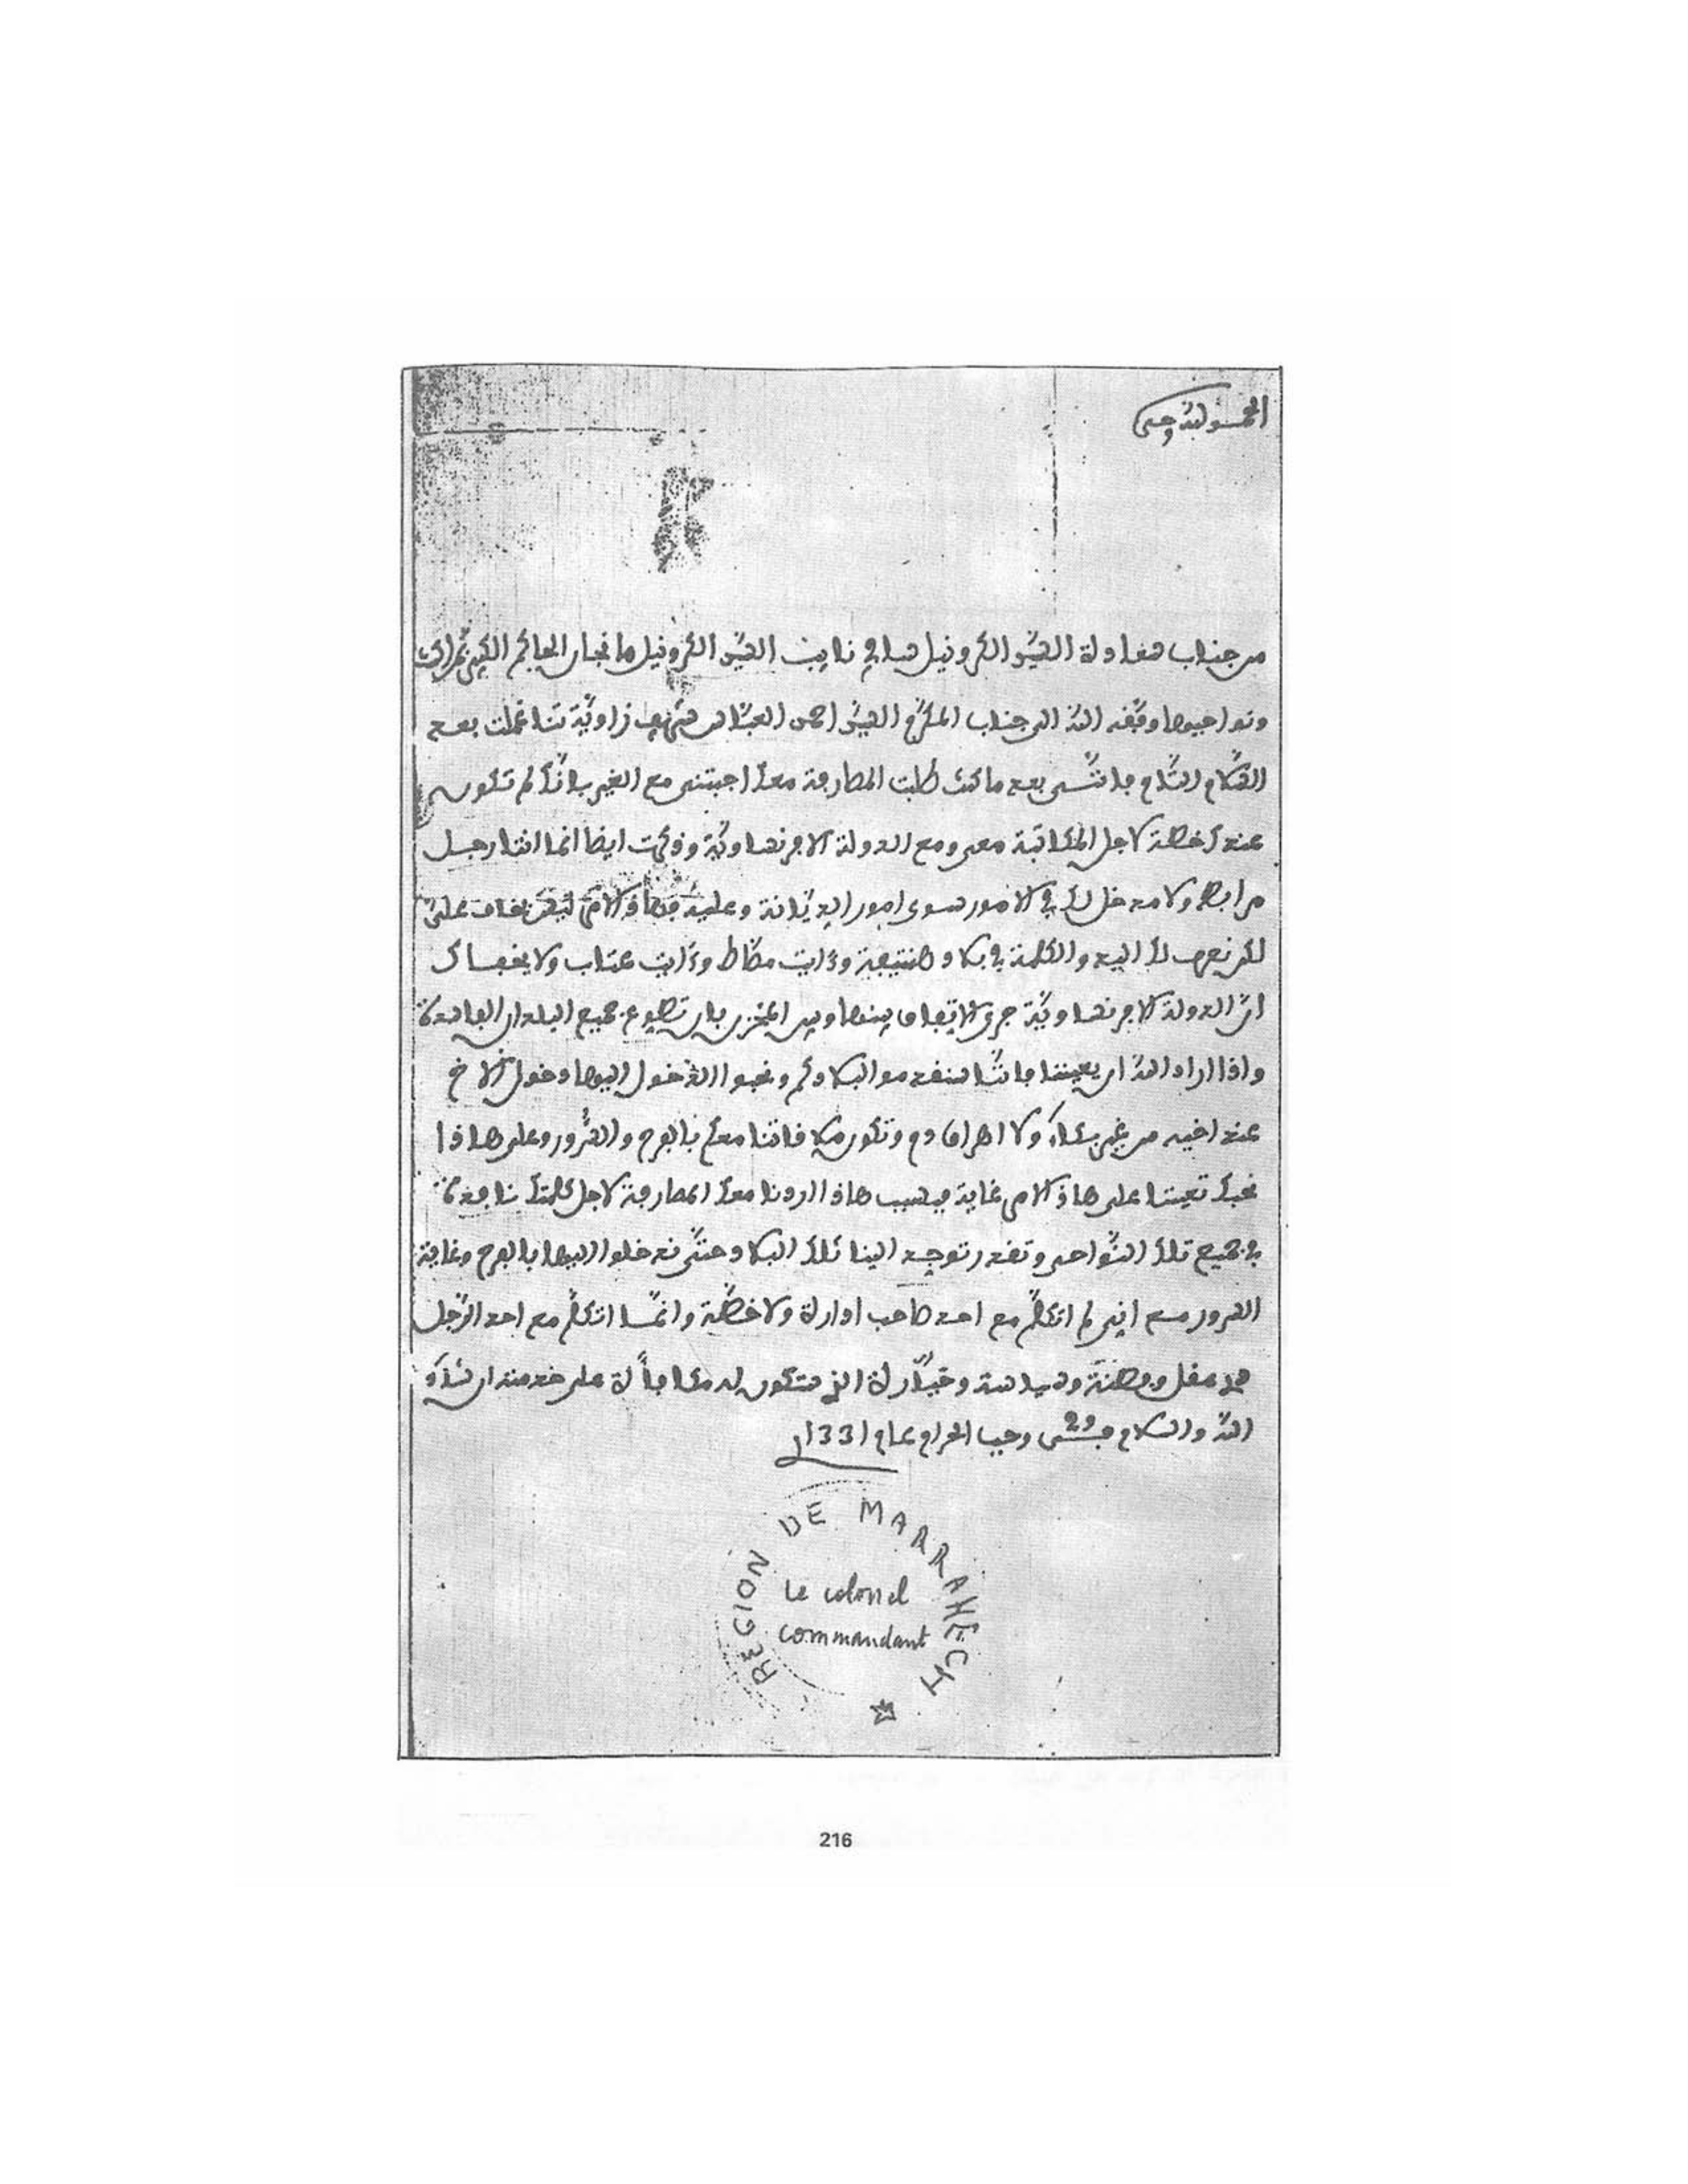 الحمد لله وحده
من جناب سعادة السيد الكرونيل نايب السيد الكرونيل مانجان الحاكم الكبير بمراكش
ونواحيها وفقه الله الى جناب المكرم السيد احمد العباس شريف زاوية تناغملت بعد
السلام التام فانني بعد ما كنت طلبت المصارفة معك اجبتني مع الغير بانك لم تكون
عندك خطة لاجل المكاتبة معي ومع الدولة الافرنساوية وذكرت ايضا انما انت رجل
مرابط ولا مدخل لك في الامور سوى امور الديانة وعليه فهاذ الامر
لكن نعرف لك اليد والكلمة في بلاد هنتيفة وءايت مصاط وءايت عتاب ولا يخفاك
ان الدولة الافرنساوية جرى الاتفاق بينها وبين المخزن بان تطوع جميع البلدان الفاسدة
واذا اراد الله ان يعيننا فاننا سنقدموا لبلادكم ونحبوا الدخول اليها دخول الاخ
عند اخيه من غير بكاء ولا اهراق دم وتكون ملاقاتنا معكم بالفرح والسرور وعلى هاذا
نحبك تعيننا على هاذ الامر غاية فبسبب هاذا اردنا معك المصارفة لاجل كلمتك نافدة
في جميع تلك النواحي وتقدر توجد الينا تلك البلاد حتى ندخلوا اليها بالفرح وغاية
السرور مع انني لم اتكلم مع احد صاحب ادارة ولا خطة وانما اتكلم مع احد الرجل
له عقل وفطنة وسياسة الذي ستكون له مكافأة على خدمته ان شاء
الله والسلام في رجب الحرام عام 1331
REGION DE MARRAKECH
Le colonel
commandant
216